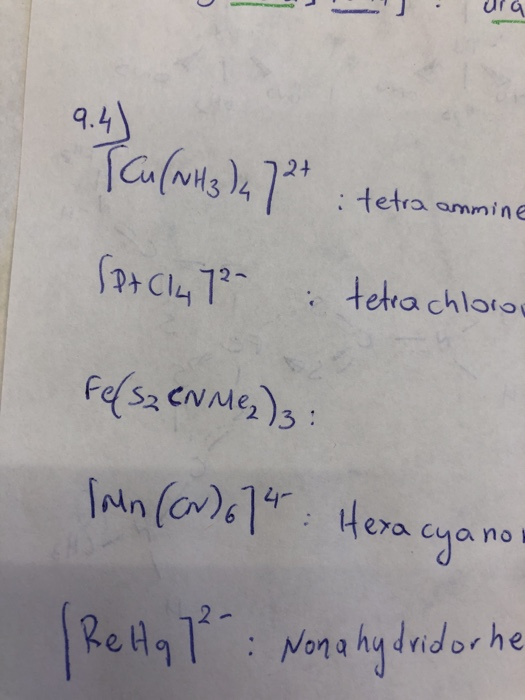 9.4)
[Cu(NH3)4]2+ : tetra ammine
[PtCl4]2- : tetrachloro
Fe(S2CNMe2)3 :
[Mn(CN)6]4- : Hexacyano
[ReH9]2- : Nonahydridorhe